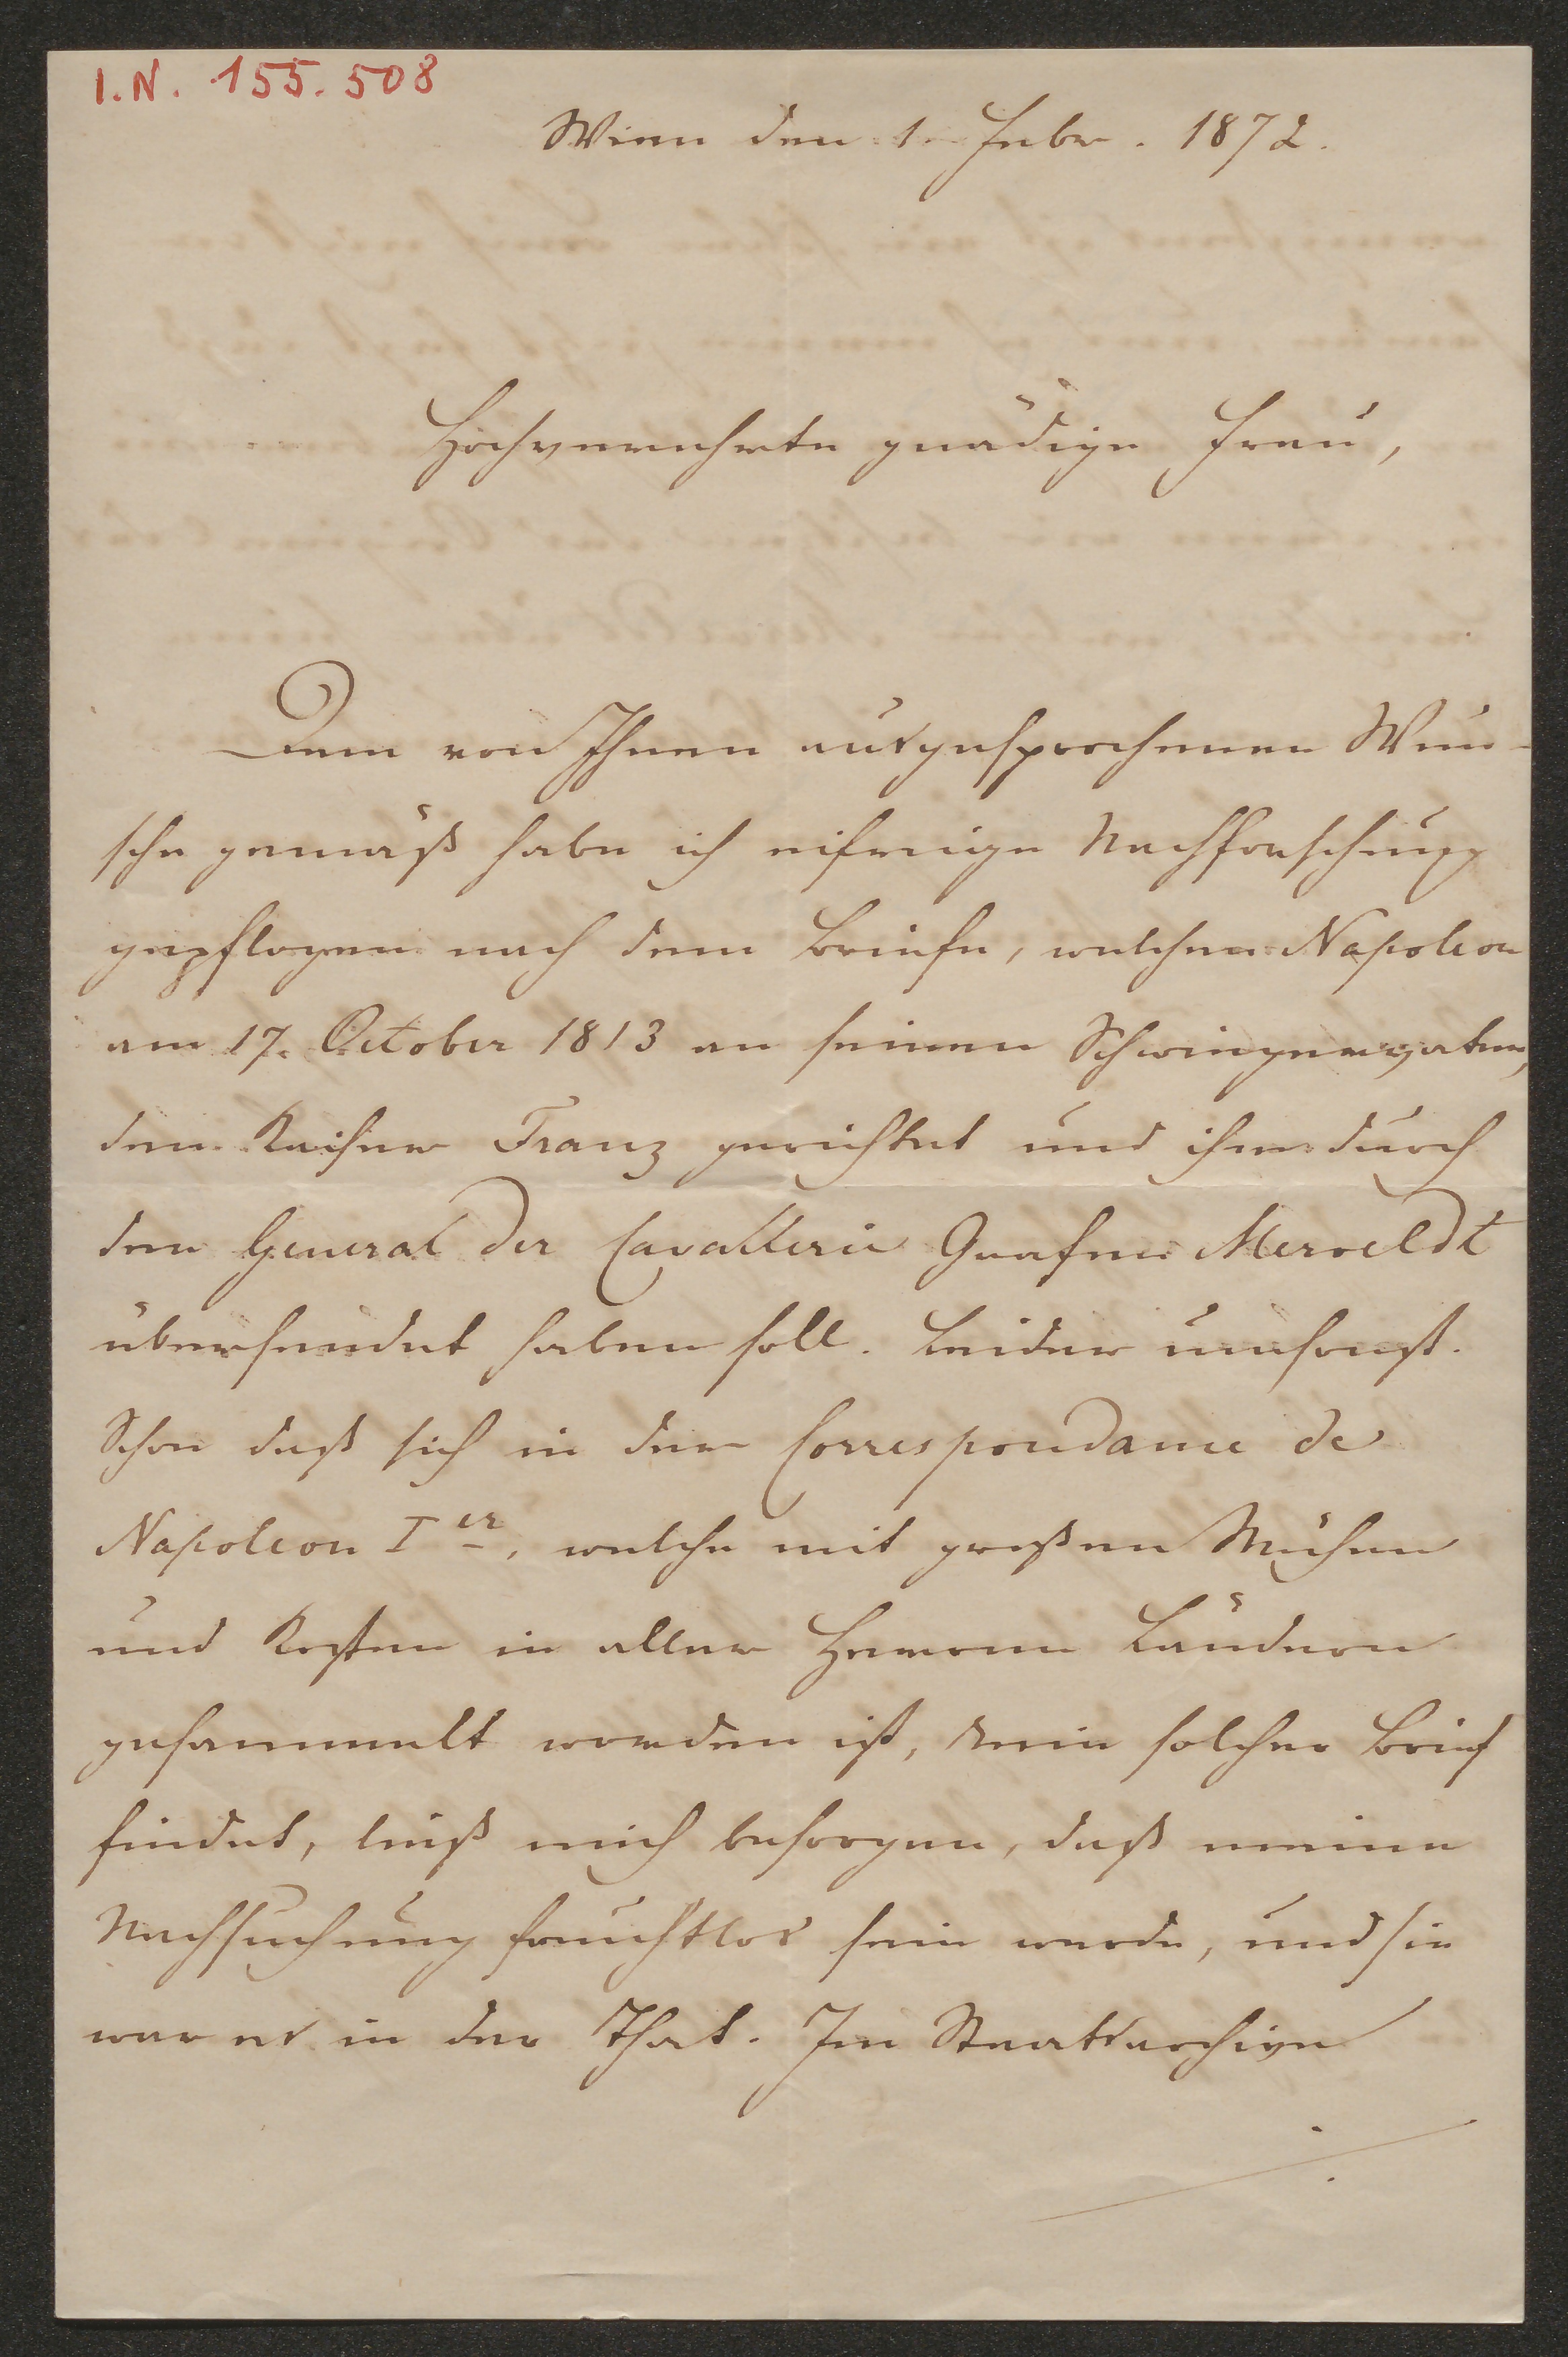 I.N. 155.508
Wien den 1. Febr. 1872.
Hochverehrte gnädige Frau,
Dem von Ihnen ausgesprochenen Wun-
sche gemäß habe ich eifrige Nachforschung
gepflogen nach dem Briefe, welchen Napoleon
am 17. October 1813 an seinen Schwiegervater,
den Kaiser Franz gerichtet und ihm durch
den General der Cavallerie Grafen Merveldt
übersendet haben soll. Leider umsonst.
Schon daß sich in der Correspondance de
Napoleon Ier, welche mit großen Mühen
und Kosten in aller Herren Ländern
gesammelt worden ist, kein solcher Brief
findet, ließ mich besorgen, daß meine
Nachsuchung fruchtlos sein werde, und sie
war es in der That. Im Staatsarchive
./.